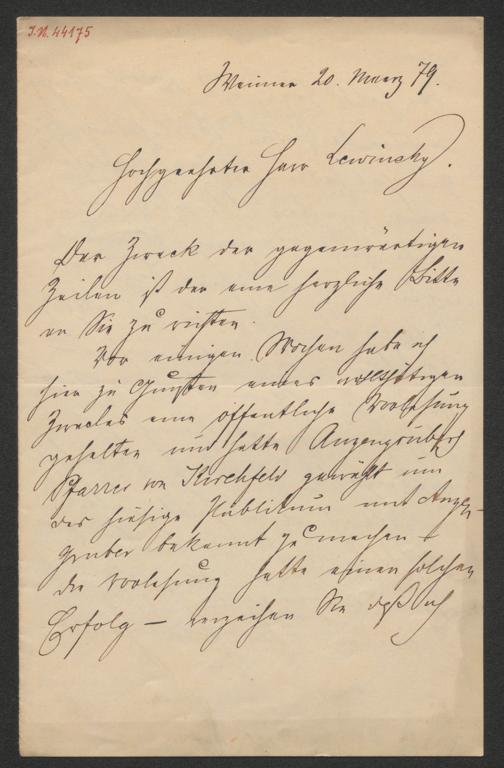 J.N. 44175
Weimar 20. Maerz 79.
Hochgeehrter Herr Lewinsky.
Der Zweck der gegenwärtigen
Zeilen ist der eine herzliche Bitte
an Sie zu richten.
Vor einigen Wochen habe ich
hier zu Gunsten eines wohlthätigen
Zweckes eine öffentliche Vorlesung
gehalten und hatte Anzengrubers
Pfarrer von Kirchfeld gewählt um
das hiesige Publikum mit Anzen-
gruber bekannt zu machen –
die Vorlesung hatte einen solchen
Erfolg – verzeihen Sie daß ich